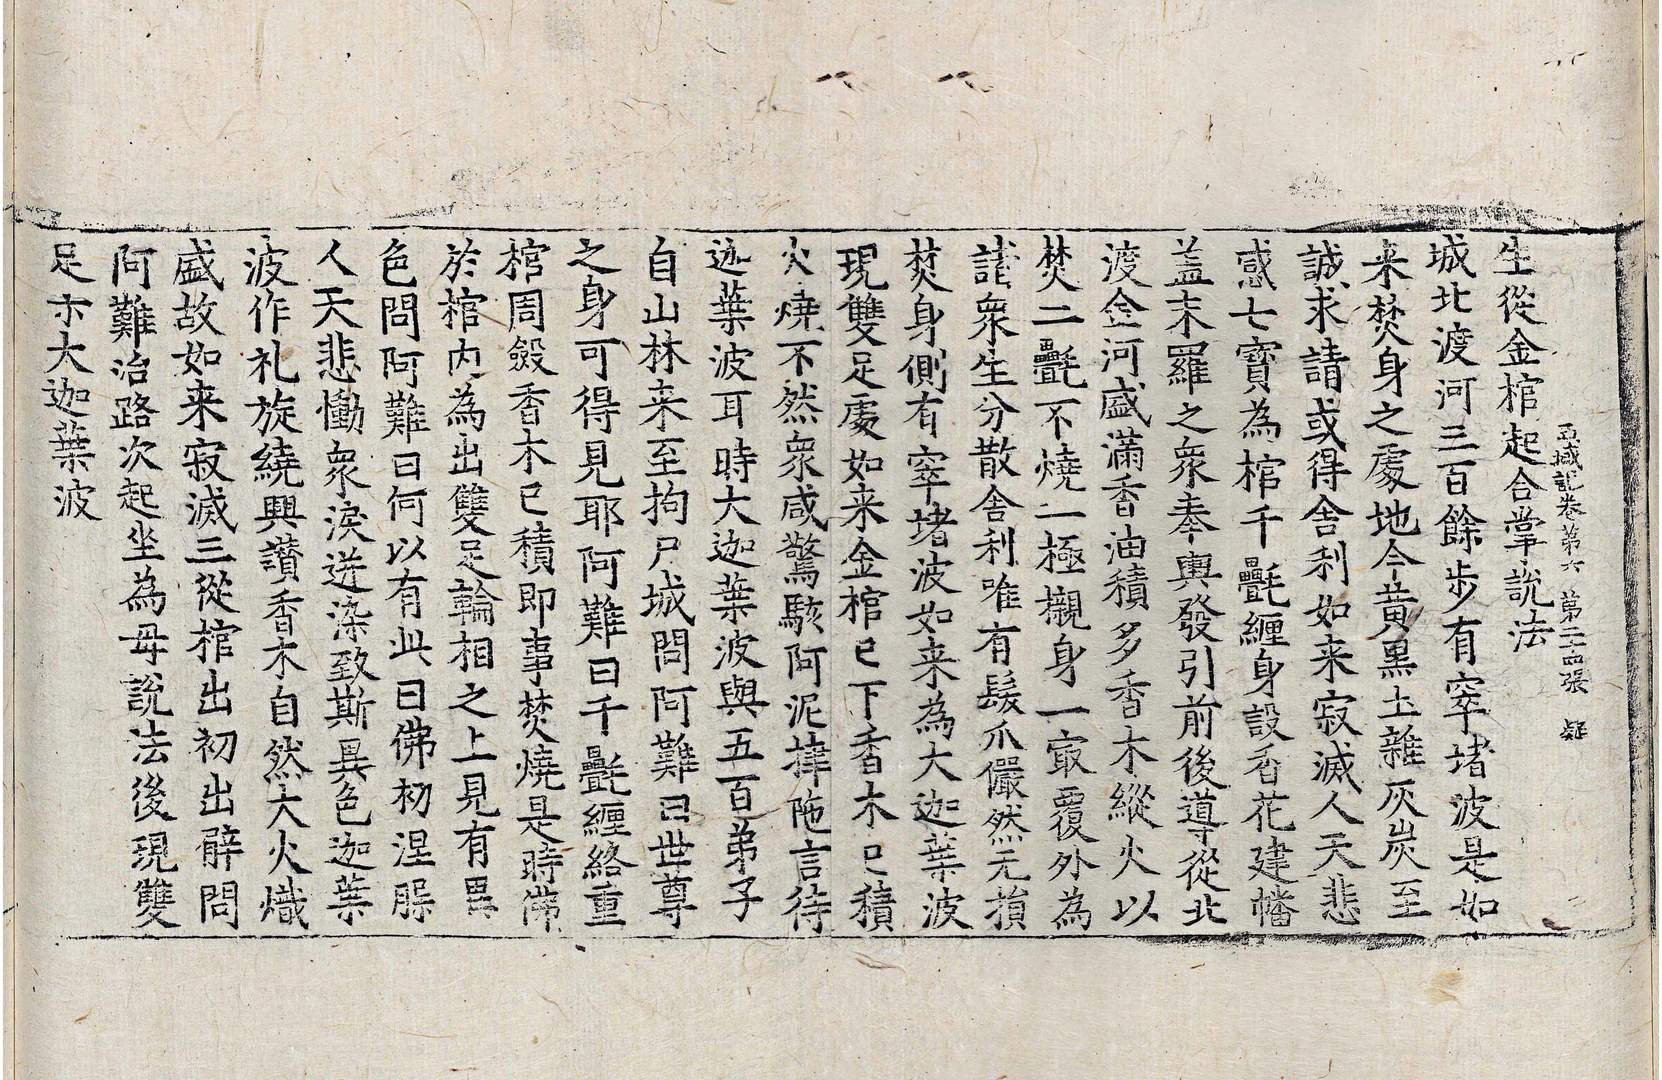 西域記卷第六 第二十四張 疑
生從金棺起合掌說法
城北渡河三百餘步有窣堵波是如
来焚身之處地今黃黑土雜灰炭至
誠求請或得舍利如来寂滅人天悲
感七寶為棺千㲲纏身設香花建幡
盖末羅之衆奉輿發引前後導從北
渡金河盛滿香油積多香木縱火以
焚二㲲不燒一極襯身一寂覆外為
諸衆生分散舍利唯有髮爪儼然无損
焚身側有窣堵波如来為大迦葉波
現雙足處如来金棺已下香木已積
火燒不然衆咸驚駭阿泥㨖陁言待
迦葉波耳時大迦葉波與五百弟子
自山林来至拘尸城問阿難曰世尊
之身可得見耶阿難曰千㲲纏絡重
棺周斂香木已積即事焚燒是時佛
於棺內為出雙足輪相之上見有異
色問阿難曰何以有此曰佛初涅槃
人天悲慟衆淚迸染致斯異色迦葉
波作礼旋繞興讚香木自然大火熾
盛故如来寂滅三從棺出初出臂問
阿難治路次起坐為母說法後現雙
足示大迦葉波